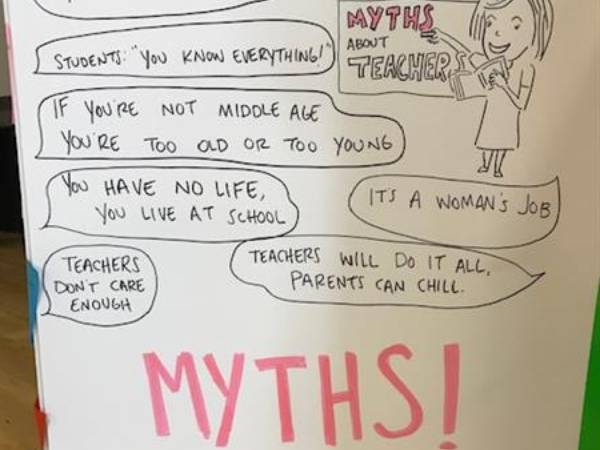 MYTHS
ABOUT
TEACHERS
STUDENTS: "YOU KNOW EVERYTHING!"
IF YOU'RE NOT MIDDLE AGE
YOU'RE TOO OLD OR TOO YOUNG
YOU HAVE NO LIFE,
YOU LIVE AT SCHOOL
IT'S A WOMAN'S JOB
TEACHERS
DON'T CARE
ENOUGH
TEACHERS WILL DO IT ALL,
PARENTS CAN CHILL.
MYTHS!